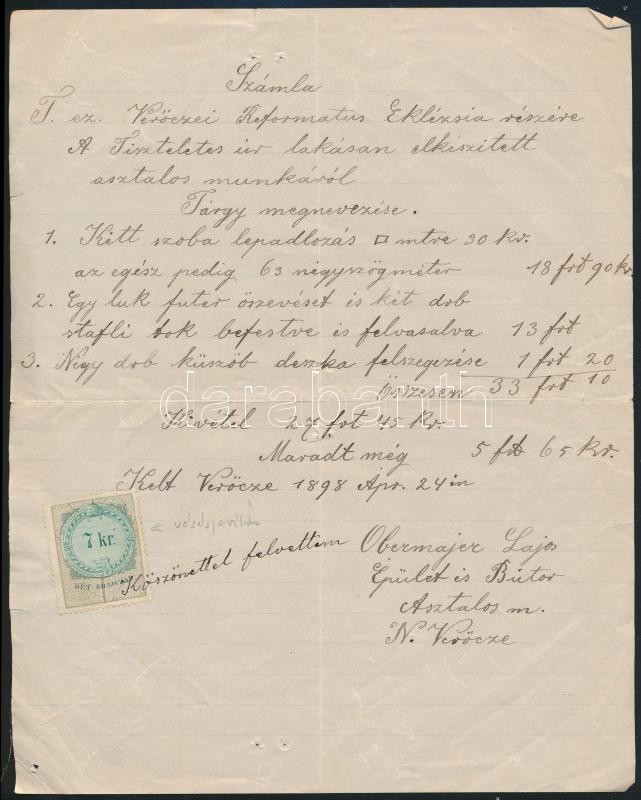 Számla
T. ez. Verőczei Reformatus Eklézsia részére
A Tiszteletes úr lakásan elkészitett
asztalos munkáról
Tárgy megnevezése.
1. Kétt szoba lepadlozás □ mtre 30 kr.
az egész pedig 63 négyszögméter 18 frt 90 kr.
2. Egy luk futer öszevését és két drb
stafli tok befestve és felvasalva 13 frt
3. Négy drb küszöb deszka felszegezése 1 frt 20
Összesen 33 frt 10
Kivétel 27 frt 45 kr.
Maradt még 5 frt 65 kr.
Kelt Verőcze 1898 Apr. 24 in
7 kr.
HÉT KRAJCZÁR
Köszönettel felvettem
Obermajer Lajos
Épület és Bútor
Asztalos m.
N. Verőcze
darabanth